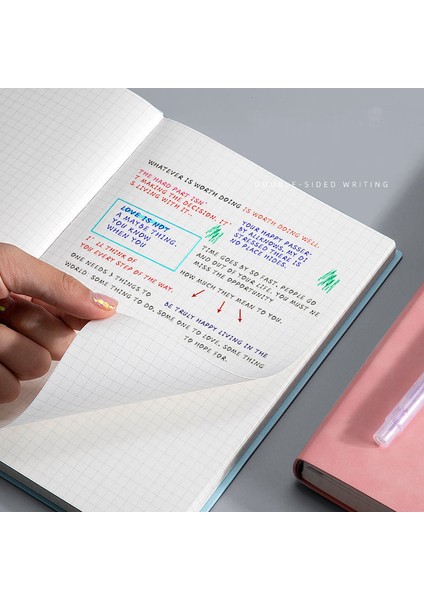 WHATEVER IS WORTH DOING IS WORTH DOING WELL.
THE HARD PART ISN'
T MAKING THE DECISION. IT'
S LIVING WITH IT..
LOVE IS NOT
A MAYBE THING.
YOU KNOW
WHEN YOU
YOUR HAPPY PASSER-
BY ALLKNOWS, MY DI
STRESSED THERE IS
NO PLACE HIDES.
I' LL THINK OF
YOU EVERY STEP OF THE WAY.
TIME GOES BY SO FAST, PEOPLE GO
AND OUT OF YOUR LIFE. YOU MUST NE
MISS THE OPPORTUNITY
HOW MUCH THEY MEAN TO YOU.
ONE NEEDS 3 THINGS TO
BE TRULY HAPPY LIVING IN THE
WORLD: SOME THING TO DO, SOME ONE TO LOVE, SOME THING
TO HOPE FOR.
-SIDED WRITING